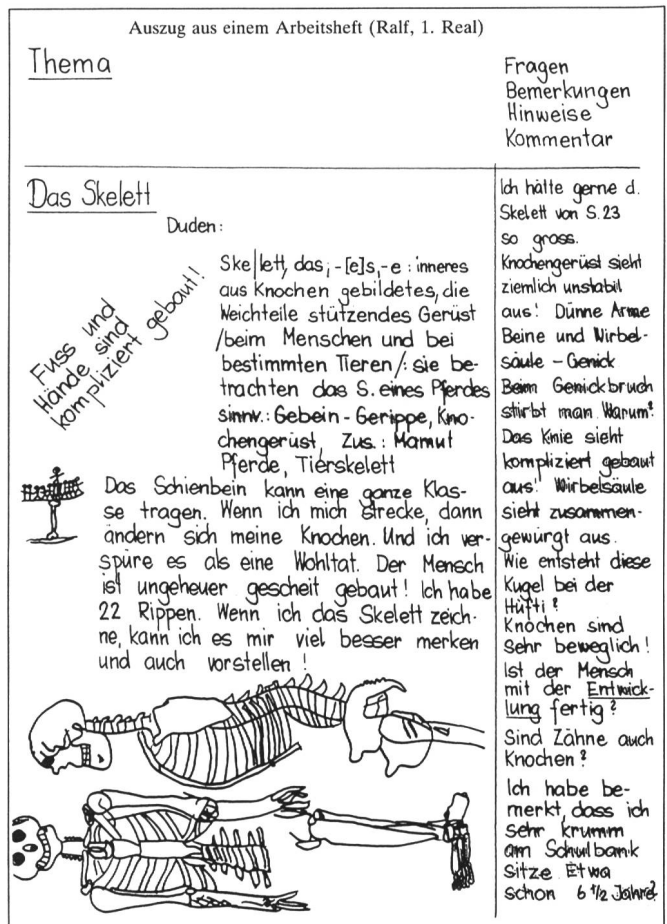 Auszug aus einem Arbeitsheft (Ralf, 1. Real)
Thema
Fragen
Bemerkungen
Hinweise
Kommentar
Das Skelett
Duden:
Fuss und
Hände sind
kompliziert gebaut!
Ske|lett, das; -[e]s, -e : inneres
aus Knochen gebildetes, die
Weichteile stützendes Gerüst
/beim Menschen und bei
bestimmten Tieren/: sie be-
trachten das S. eines Pferdes
sinnv.: Gebein - Gerippe, Kno-
chengerüst, Zus.: Mamut
Pferde, Tierskelett
Das Schienbein kann eine ganze Klas-
se tragen. Wenn ich mich strecke, dann
ändern sich meine Knochen. Und ich ver-
spüre es als eine Wohltat. Der Mensch
ist ungeheuer gescheit gebaut! Ich habe
22 Rippen. Wenn ich das Skelett zeich-
ne, kann ich es mir viel besser merken
und auch vorstellen!
Ich hätte gerne d.
Skelett von S.23
so gross.
Knochengerüst sieht
ziemlich unstabil
aus! Dünne Arme
Beine und Wirbel-
säule - Genick
Beim Genickbruch
stirbt man. Warum?
Das Knie sieht
kompliziert gebaut
aus! Wirbelsäule
sieht zusammen-
gewürgt aus.
Wie entsteht diese
Kugel bei der
Hüfti?
Knochen sind
sehr beweglich!
Ist der Mensch
mit der Entwick-
lung fertig?
Sind Zähne auch
Knochen?
Ich habe be-
merkt, dass ich
sehr krumm
am Schulbank
sitze. Etwa
schon 6 1/2 Jahre?